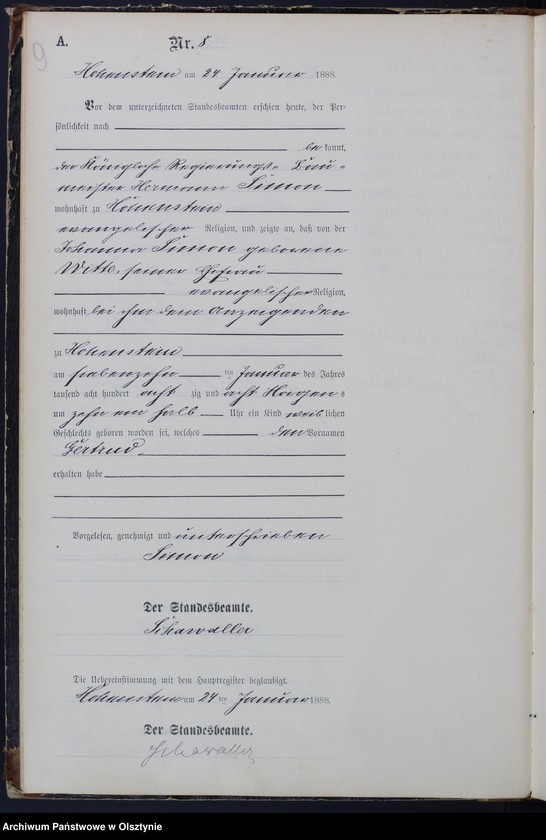 9
A.
Nr. 8
Hohenstein am 24 Januar 1888.
Vor dem unterzeichneten Standesbeamten erschien heute, der Per-
sönlichkeit nach
bekannt,
der Königliche Regierungs- Bau-
meister Hermann Simon
wohnhaft zu Hohenstein
evangelischer Religion, und zeigte an, daß von der
Johanna Simon geborene
Witte, seiner Ehefrau
evangelischer Religion,
wohnhaft bei ihm dem Anzeigenden
zu Hohenstein
am siebenzehn ten Januar des Jahres
tausend acht hundert acht zig und acht Morgens
um zehn ein halb Uhr ein Kind weiblichen
Geschlechts geboren worden sei, welches den Vornamen
Gertrud
erhalten habe
Vorgelesen, genehmigt und unterschrieben
Simon
Der Standesbeamte.
Schawaller
Die Uebereinstimmung mit dem Hauptregister beglaubigt.
Hohenstein am 24 ten Januar 1888.
Der Standesbeamte.
Schawaller
Archiwum Państwowe w Olsztynie